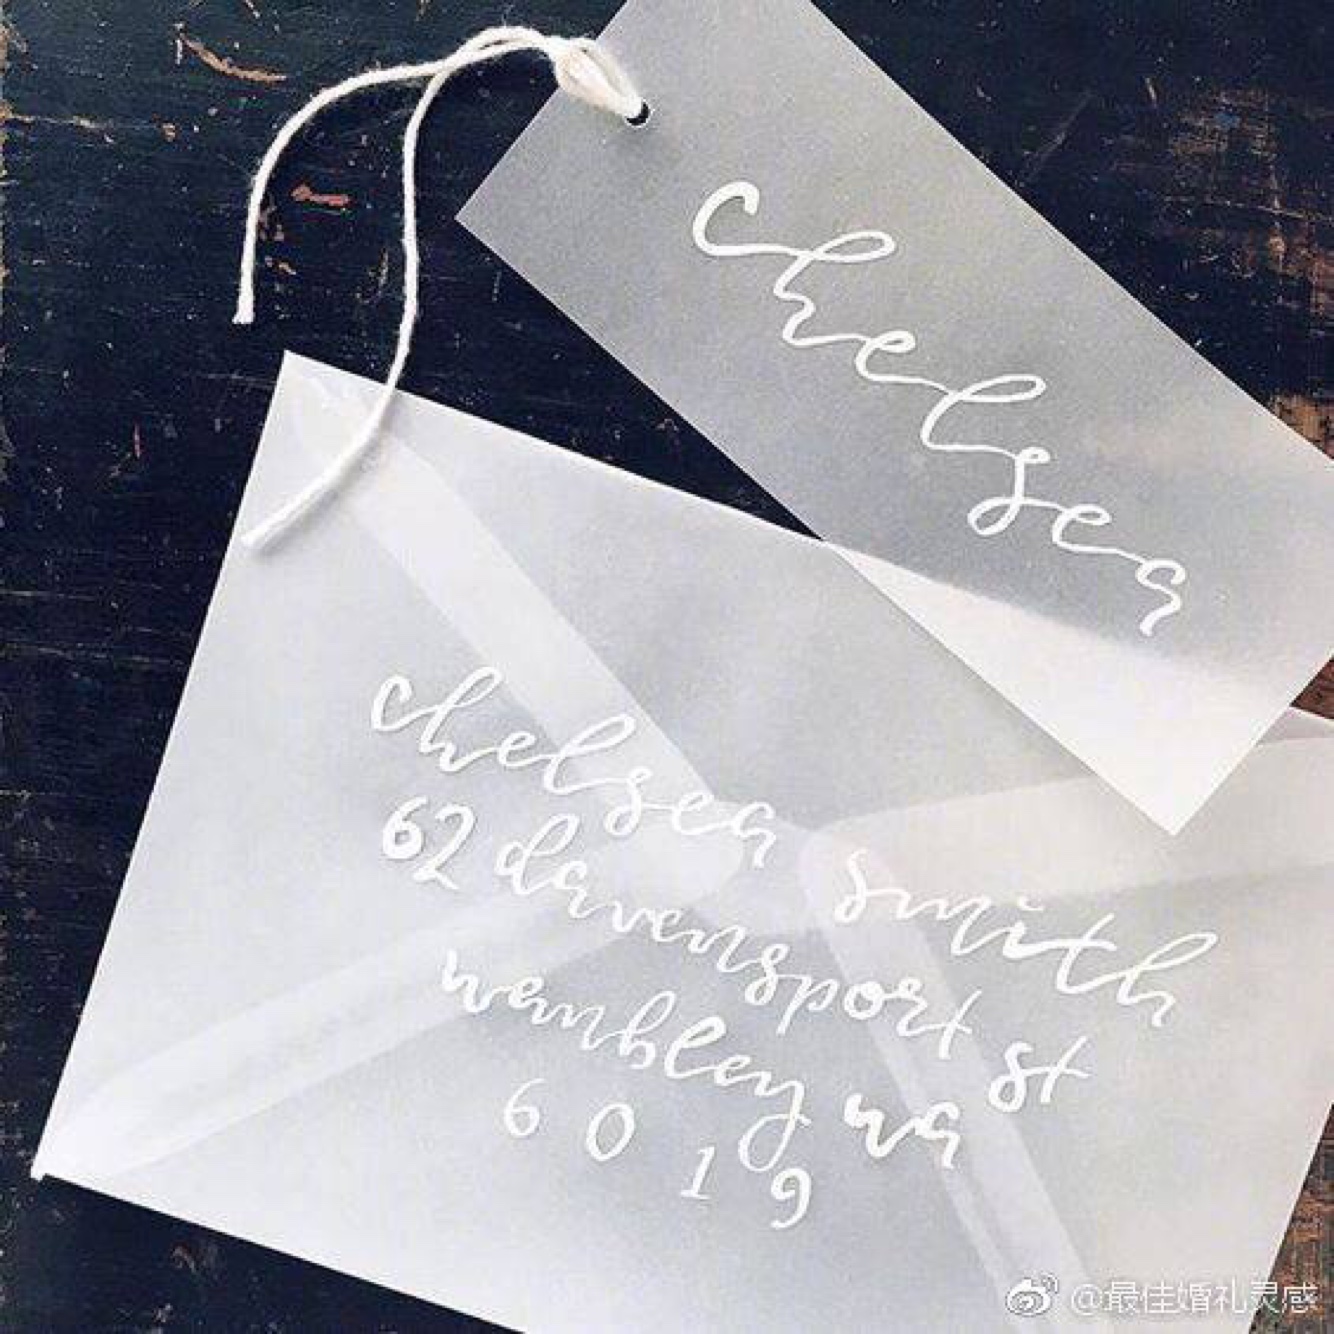 chelsea
chelsea smith
62 davensport st
wembley wa
6019
@最佳婚礼灵感